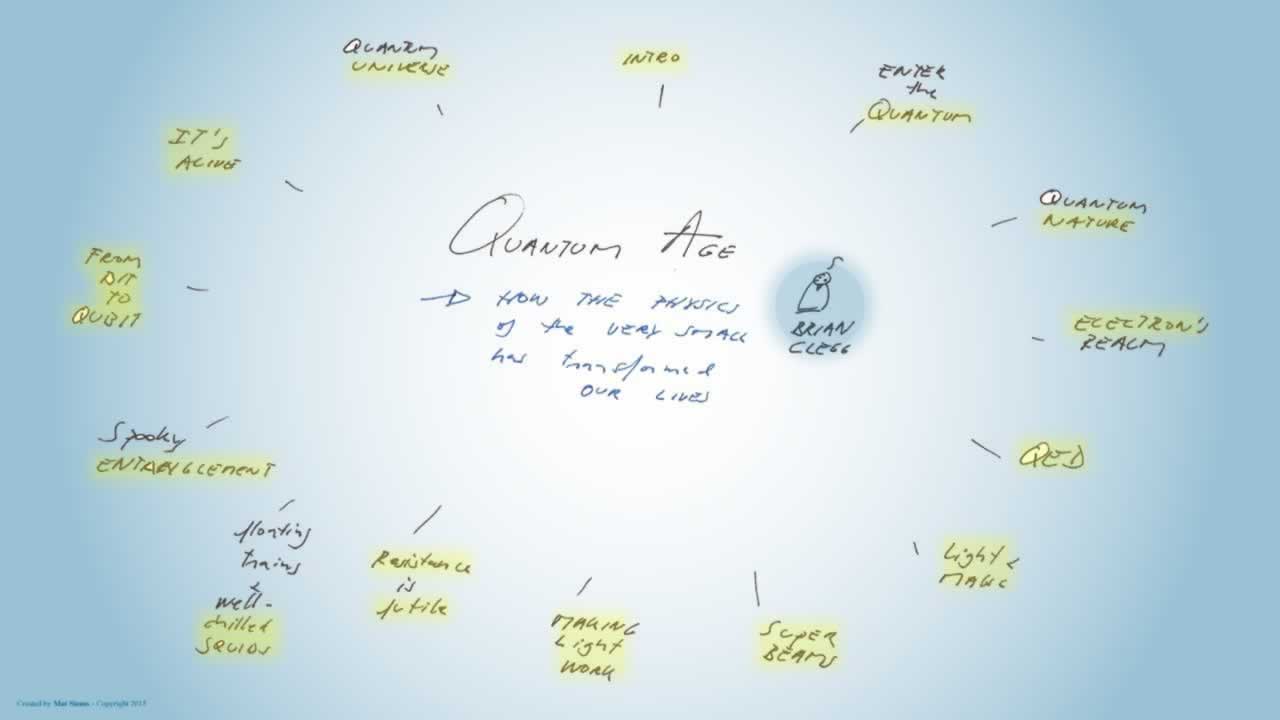 QUANTUM AGE
→ HOW THE PHYSICS
of the VERY SMALL
has transformed
OUR LIVES
BRIAN
CLEGG
INTRO
ENTER
the
QUANTUM
QUANTUM
NATURE
ELECTRON'S
REALM
QED
Light &
MAGIC
SUPER
BEAMS
MAKING
Light
WORK
Resistance
is
futile
floating
trains
&
well-
chilled
SQUIDS
Spooky
ENTANGLEMENT
FROM
BIT
TO
QUBIT
IT'S
ALIVE
QUANTUM
UNIVERSE